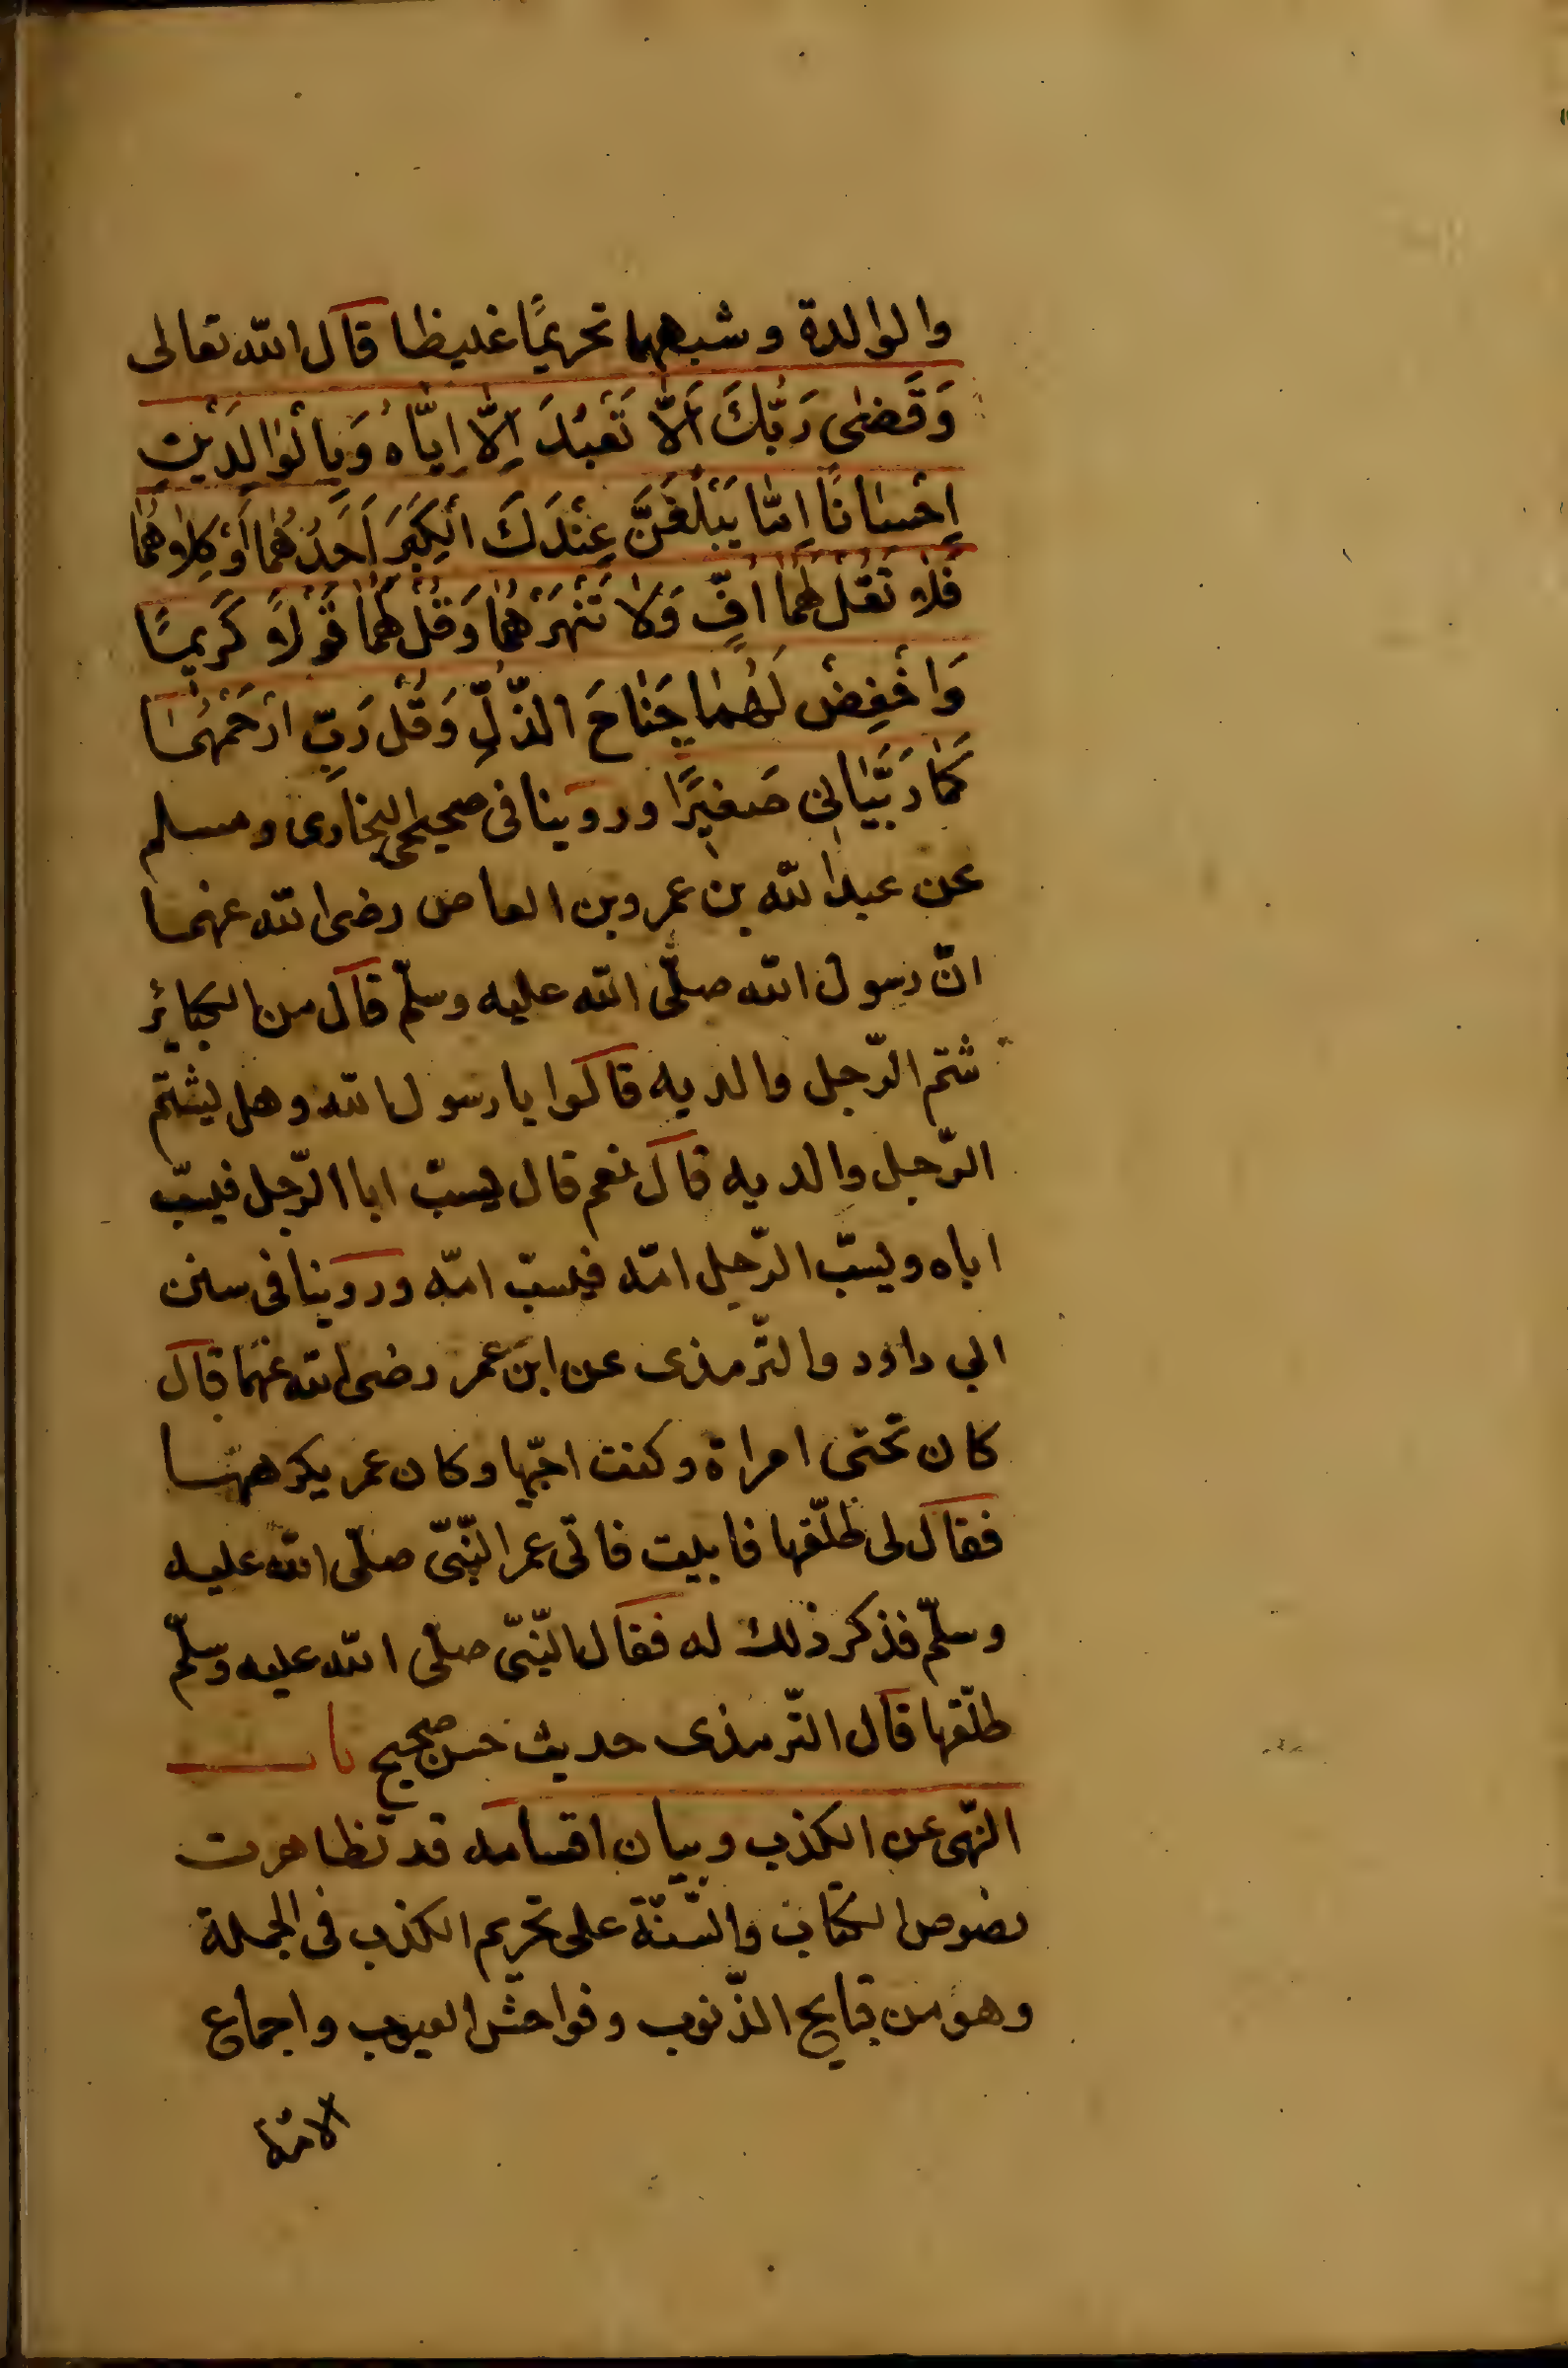 والوالدة وشبههما تحريمًا غليظا قال الله تعالى
وَقَضىٰ رَبُّكَ اَلَّا تَعْبُدَ اِلَّا اِيَّاهُ وَبِالْوٰالِدَيْنِ
اِحْسٰانًا اِمّٰا يَبْلُغَنَّ عِنْدَكَ الْكِبَرَ اَحَدُهُمٰا اَوْ كِلاٰهُمٰا
فَلاٰ تَقُلْ لَهُمٰا اُفٍّ وَلاٰ تَنْهَرْهُمٰا وَقُلْ لَهُمٰا قَوْلاً كَرِيمًا
وَاخْفِضْ لَهُمٰا جَنٰاحَ الذُّلِّ وَقُلْ رَبِّ ارْحَمْهُمٰا
كَمٰا رَبَّيٰانِى صَغِيرًا وروينا فى صحيحى البخارى ومسلم
عن عبد الله بن عمرو بن العاص رضى الله عنهما
انّ رسول الله صلّى الله عليه وسلّم قال من الكبائر
شتم الرّجل والديه قالوا يا رسول الله وهل يشتم
الرّجل والديه قال نعم قال يسبّ ابا الرّجل فيسبّ
اباه ويسبّ الرّجل امّه فيسبّ امّه وروينا فى سنن
ابي داود والتّرمذى عن ابن عمر رضى الله عنهما قال
كان تحتى امراة وكنت احبّها وكان عمر يكرهها
فقال لى طلّقها فابيت فاتى عمر النّبىّ صلّى الله عليه
وسلّم فذكر ذلك له فقال النّبىّ صلّى الله عليه وسلّم
طلّقها قال التّرمذى حديث حسن صحيح باب
النّهى عن الكذب وبيان اقسامه قد تظاهرت
نصوص الكتاب والسّنّة على تحريم الكذب فى الجملة
وهو من قبايح الذّنوب وفواحش العيوب واجماع
الامّة